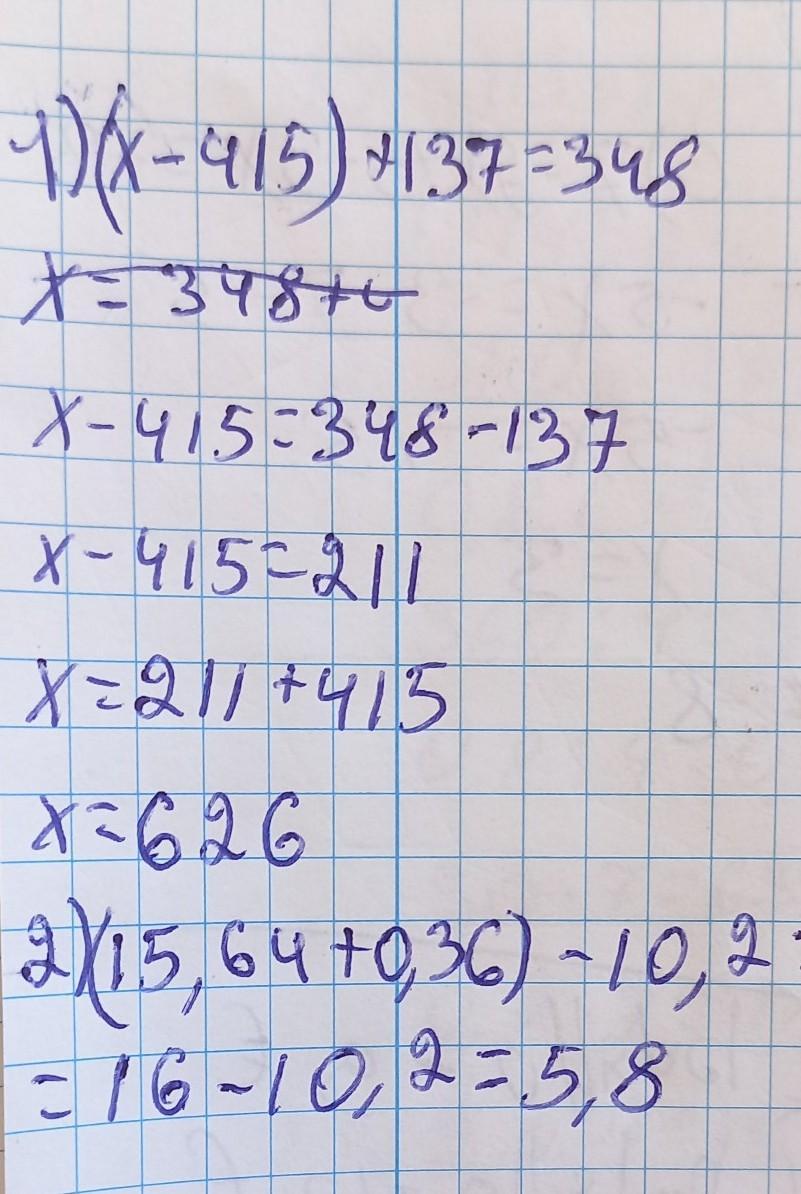 1) (x-415)+137=348
x=348+
x-415=348-137
x-415=211
x=211+415
x=626
2) (15,64+0,36)-10,2=
=16-10,2=5,8